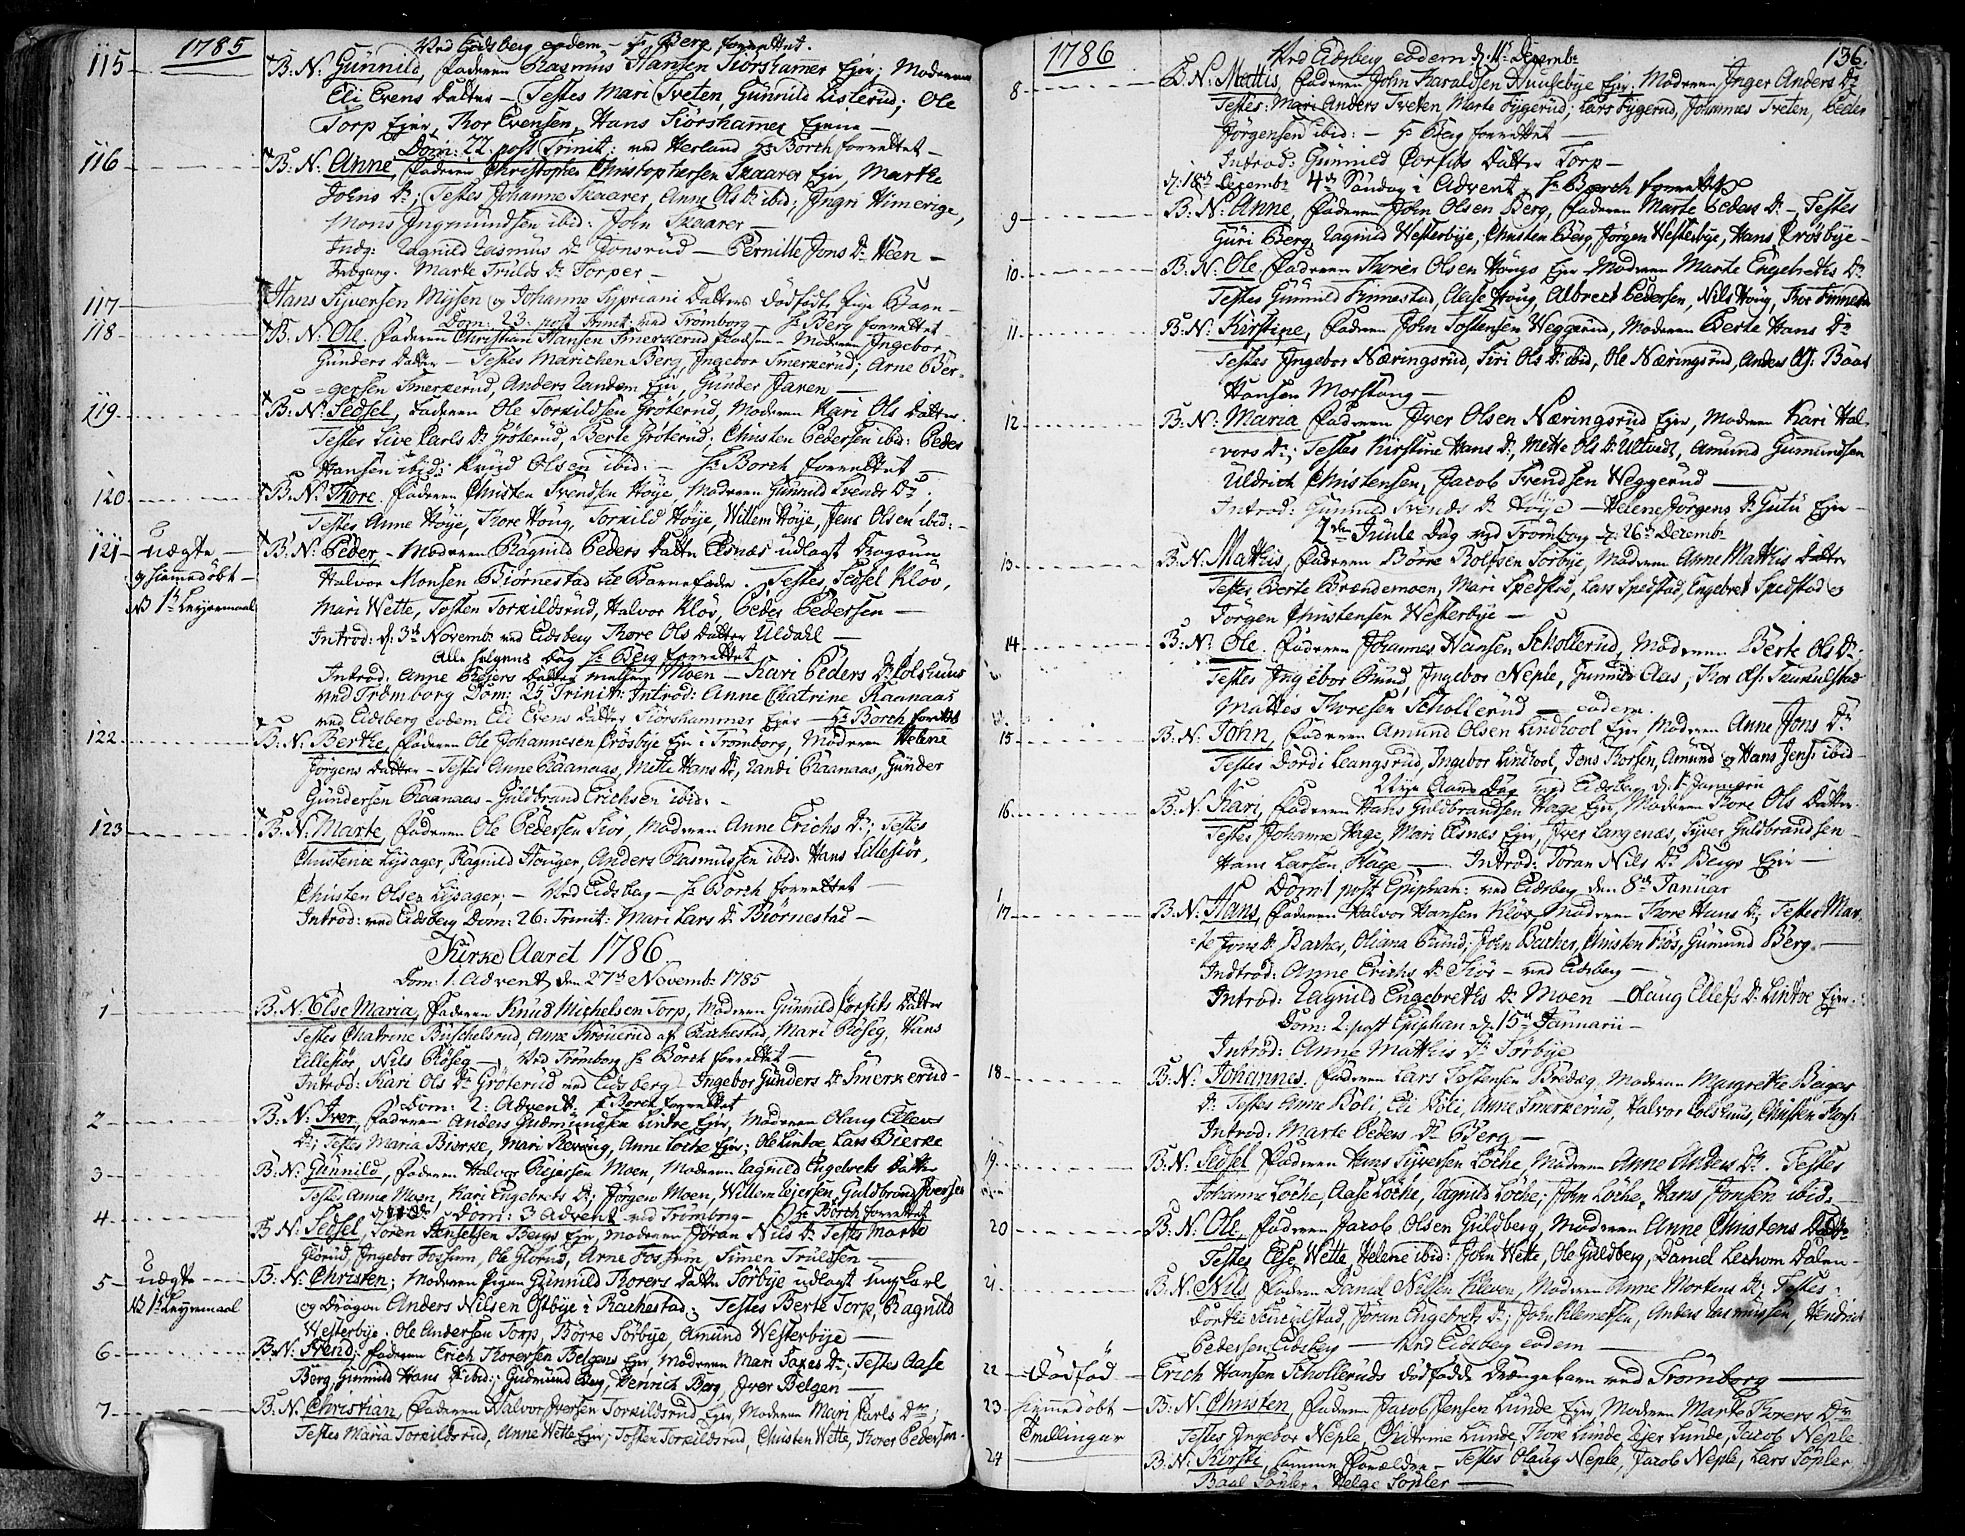 1785
Ved Eidsberg eodem – Hr Berg forrettet.
115 B: N: Gunnild, Faderen Rasmus Hansen Siorshammer Eier; Moderen
Eli Evens Datter – Testes Mari Tveten, Gunnild Listerud; Ole
Torp Eier, Thor Evensen, Hans Siorshammer Eiene –
Dom: 22 post Trinit: ved Herland Hr Borch forrettet –
116 B: N: Anne, Faderen Christopher Christophersen Skaarer Eier, Marthe
Johns Dr; Testes Johanne Skaarer, Anne Ols Dr ibid; Ingri Himerige,
Mons Ingmundsen ibid: John Skaarer –
Indg: Ragnild Rasmus Dr Tonsrud – Pernille Jons Dr Heen –
Indgang. Marte Truls Dr Torper –
117 Hans Syversen Mysen og Johanne Sypriani Datters dødfødte Pige Barn –
Dom: 23 post Trinit: ved Trømborg Hr Berg forrettet
118 B: N: Ole, Faderen Christian Hansen Smerkerud Pladsen – Moderen Ingebor
Gunders Datter – Testes Marichen Berg, Ingebor Smerkerud; Arne Ber-
gersen Smerkerud, Anders Randem Eier, Gunder Jaren –
119 B: N: Sedsel, Faderen Ole Torkildsen Grøterud, Moderen Kari Ols Datter
Testes Live Carls Dr Grøterud, Berte Grøterud; Christen Pedersen ibid: Peder
Hansen ibid; Knud Olsen ibid: – Hr Borch forrettet –
120 B: N: Thore, Faderen Christen Svendsen Høye, Moderen Gunnild Svends Dr.
Testes Anne Høye, Thore Houg, Torkild Høye, Willem Høye, Jens Olsen ibid: –
121 uægte B: N: Peder, – Moderen Ragnild Peders Datter Esnæs udlagt Dragoun
og hiemedøbt – Halvor Monsen Biørnestad til Barnefader. Testes, Sedsel Kløv,
NB 1te Leyermaal Mari Wette, Tosten Torkildsrud, Halvor Kløv, Peder Pedersen –
Introd: d: 3de Novemb: ved Eidsberg Thore Ols Datter Uldahl –
Alle helgens Dag Hr Berg forrettet
Introd: Anne Reiers Datter Moen – Kari Peders Dr Colshuus
ved Trømborg Dom: 25 Trinit: Introd: Anne Chatrine Raanaas
ved Eidsberg eodem Eli Evens Datter Siorshammer Eier – Hr Borch forrettet
122 B: N: Berthe, Faderen Ole Johannesen Crosbye Eier i Trømborg, Moderen Helene
Jørgens Datter – Testes Anne Raanaas, Mette Hans Dr, Randi Raanaas, Gunder
Gundersen Raanaas – Guldbrand Erichsen ibid: –
123 B: N: Marte, Faderen Ole Pedersen Siør, Moderen Anne Erichs Dr; Testes
Christence Lysager, Ragnild Houger, Anders Rasmussen ibid: Hans Lillesiør,
Christen Olsen Lysager, – Ved Eidsberg – Hr Borch forrettet –
Introd: ved Eidsberg Dom: 26: Trinit: Mari Lars Dr Biørnestad –
Kirke Aaret 1786
Dom: 1. Advent den 27de Novemb: 1785
1 B: N: Else Maria, Faderen Knud Michelsen Torp, Moderen Gunnild Corfits Datter
Testes Chatrine Buschelsrud, Anne Krouerud af Rachestad, Mari Røseg, Hans
Lillesiør, Nils Røseg – Ved Trømborg Hr Borch forrettet –
Introd: Kari Ols Dr Grøterud ved Eidsberg – Ingebor Gunders Dr Smerkerud –
Dom: 2: Advent, Hr Borch forrettet
2 B: N: Iver, Faderen Anders Gudmundsen Lintve Eier, Moderen Olaug Ellevs
Dr; Testes Maria Biørke, Mari Revoug, Anne Løche Eier; Ole Lintve Lars Bierke
3 B: N: Gunnild, Faderen Halvor Reiersen Moen, Moderen Ragnild Engebrets Datter
Testes Anne Moen, Kari Engebrets Dr; Jørgen Moen, Willem Eiersen, Guldbrand Iversen
Dom: 3 Advent ved Trømborg – Hr Borch forrettet
4 B: N: Sedsel, Soren Hanselsen Bergs Eier, Moderen Joran Nils Dr Testes Marte
Glorud, Ingebor Fossum, Ole Glorud, Arne Fossum Simen Trulssen –
5 uægte – B: N: Christen; Moderen Pigen Gunnild Thorers Datter Sorbye udlagt ungkarl
NB 1te Leyermaal og Dragon Anders Nilsen Ostbye i Rachestad; Testes Berte Torp, Ragnild
Westerbye. Ole Andersen Torp, Børre Sørbye, Amund Westerbye –
6 B: N: Svend; Faderen Erich Thoresen Belgens Eier, Moderen Mari Saxes Dr; Testes Aase
Berg, Gunnild Hans Dr ibid:; Gudmund Berg, Henrich Berg, Iver Belgen –
7 B: N: Christian, Faderen Halvor Iversen Torkildsrud Eier Moderen Mari Carls Dr;
Testes Maria Torkildsrud, Anne Wette Eier; Tosten Torkildsrud, Christen Wette, Thorer Pedersen.
1786 136.
Ved Eidsberg eodem d: 11te Decemb:
8 B: N: Mattis, Faderen John Haraldsen Huusebye Eier; Moderen Inger Anders Dr
Testes: Mari Anders Tveten, Marte Rygerud; Lars Rygerud, Johannes Tveten, Peder
Jörgensen ibid: – Hr Berg forrettet –
Introd: Gunnild Corfits Datter Torp –
d: 18de Decemb: 4de Søndag i Advent, Hr Borch forrettet
9 B: N: Anne, Faderen John Olsen Berg, Faderen Marte Peders Dr – Testes
Guri Berg, Ragnild Westerbye, Christen Berg, Jørgen Westerbye, Hans Crosbye –
10 B: N: Ole, Faderen Thorer Olsen Hougs Eier Moderen Marte Engebrets Dr
Testes Gunnild Finnestad, Aase Houg, Albrect Pedersen, Nils Houg, Thor Finnestad
11 B: N: Kirstine, Faderen John Tostensen Weggerud, Moderen Berte Hans Dr
Testes Ingebor Næringsrud, Siri Ols Dr ibid, Ole Næringsrud, Anders Ols: Baas
Hansen Morstong –
12 B: N: Maria Faderen Iver Olsen Næringsrud Eier, Moderen Kari Hal-
vors Dr; Testes Kirstine Hans Dr, Mette Ols Dr Ultvedt, Amund Gumundsen
Uldrich Christensen, Jacob Svendsen Weggerud –
Introd: Gunnild Svends Dr Høye – Helene Jørgens Dr Gutu Eier –
2den Juule Dag ved Trømborg d: 26de Decemb:
13 B: N: Mathis, Faderen Börre Rolfsen Sörbye, Moderen Anne Mathis Datter
Testes Berte Brændemoen, Mari Spedstad, Lars Spedstad, Engebret Spedstad og
Jörgen Christensen Westerbye –
14 B: N: Ole, Faderen Johannes Hansen Schollerud, Moderen Berte Ols Dr;
Testes Ingebor Rund, Ingebor Neple, Gunnild Aas; Thor Ols: Skuculstad
Mattis Thoresen Schollerud – eodem.
15 B: N: John, Faderen Amund Olsen Lindhool Eier Moderen Anne Jons Dr
Testes Dordi Leangsrud, Ingebor Lindhool, Jens Thorsen, Amund og Hans Jens: ibid –
Nye Aars Dag ved Eidsberg d: 1te Januarii
16 B: N: Kari, Faderen Hans Guldbrandsen Hage Eier, Moderen Thore Ols Datter
Testes Johanne Hage, Mari Esnæs Eier, Iver Langenæs, Syver Guldbrandsen
Hans Larsen Hage, – Introd: Joran Nils Dr Bergs Eier –
Dom 1 post Epiphan: ved Eidsberg den 8de Januar
17 B: N: Hans, Faderen Halvor Hansen Kløv Moderen Thore Hans Dr; Testes Mar-
te Jons Dr Bacher, Oliana Rund; John Bacher, Christen Frøs, Gumund Berg. –
Indtrod: Anne Erichs Dr Siør – ved Eidsberg –
Introd: Ragnild Engebreths Dr Moen – Olaug Ellefs Dr Lintve Eier:
Dom: 2: post Epiphan d: 15de Januarii –
Introd: Anne Mathis Dr Sörbye
18 B: N: Johannes, Faderen Lars Tostensen Bredeg, Moderen Margrethe Berger
Dr: Testes Anne Böli, Eli Böli, Anne Smerkerud, Halvor Colshuus, Christen Thors:
Introd: Marte Peders Dr Berg –
19 B: N: Sedsel Faderen Hans Syversen Löche, Moderen Anne Anders Dr. Testes
Johanne Löche, Aase Löche, Ragnild Löche; John Löche, Hans Jonsen ibid: –
20 B: N: Ole, Faderen Jacob Olsen Guldberg, Moderen Anne Christens Datter
Testes Else Wette, Helene ibid: John Wette, Ole Guldberg, Daniel Lexhom Dalen –
21 B: N: Nils Faderen Daniel Nilsen Kleven, Moderen Anne Mortens Dr; Testes
Dorthe Skuculstad, Joran Engebrets Dr; John Klemetsen, Anders Rasmussen, Hendrich
Pedersen Eidsberg – Ved Eidsberg eodem –
22 Dødfød – Erich Hansen Scholleruds dødfødde Drængebarn ved Trømborg –
23 hiemedøbt B: N: Christen, Faderen Jacob Jensen Lunde Eier, Moderen Marte Thorers Dr
Tvillinger Testes Ingebor Neple, Chatrine Lunde, Thore Lunde Reier Lunde, Jacob Neple
24 B: N: Kirsti, samme Forældre – Testes Olaug Neple, Jacob Neple, Lars Sopler
Baal Sopler, Helge Sopler –